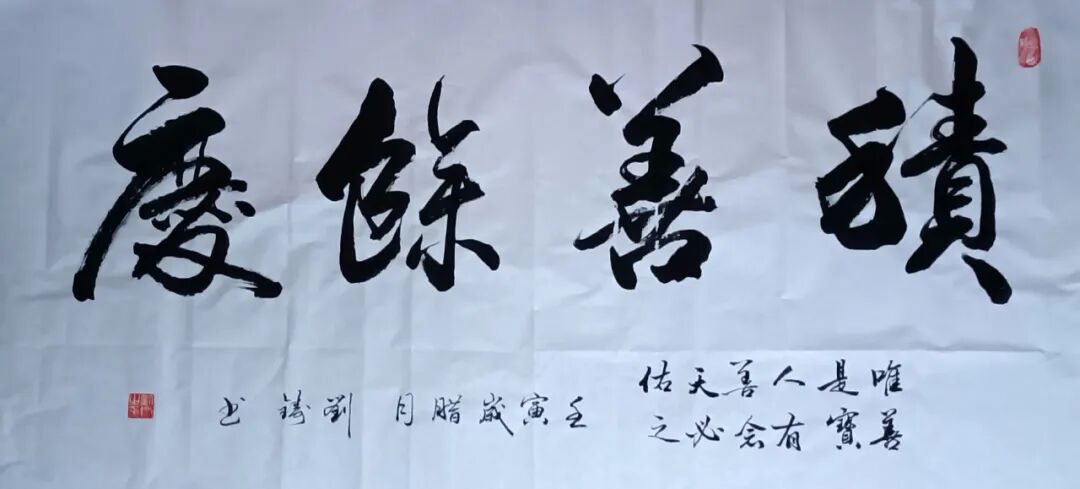 積善餘慶
唯善是寶人有善念天必佑之
壬寅歲腊月劉鑄书